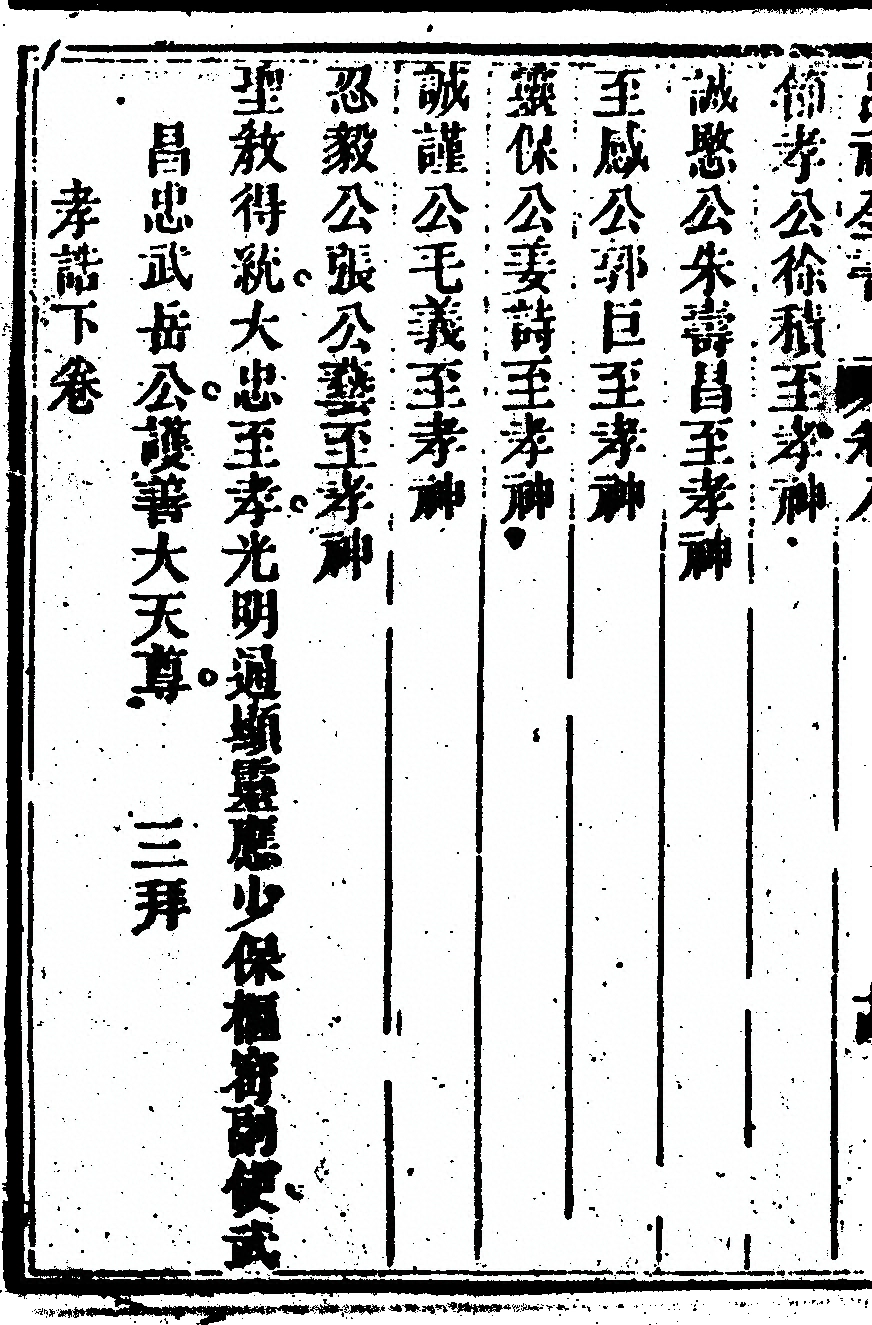 節孝公徐積至孝神
誠愍公朱壽昌至孝神
至感公郭巨至孝神
保公姜詩至孝神
誠謹公毛義至孝神
忍毅公張公藝至孝神
聖教得統大忠至孝光明通顯靈應少保樞密副使武
昌忠武岳公護善大天尊 三拜
孝誥下卷